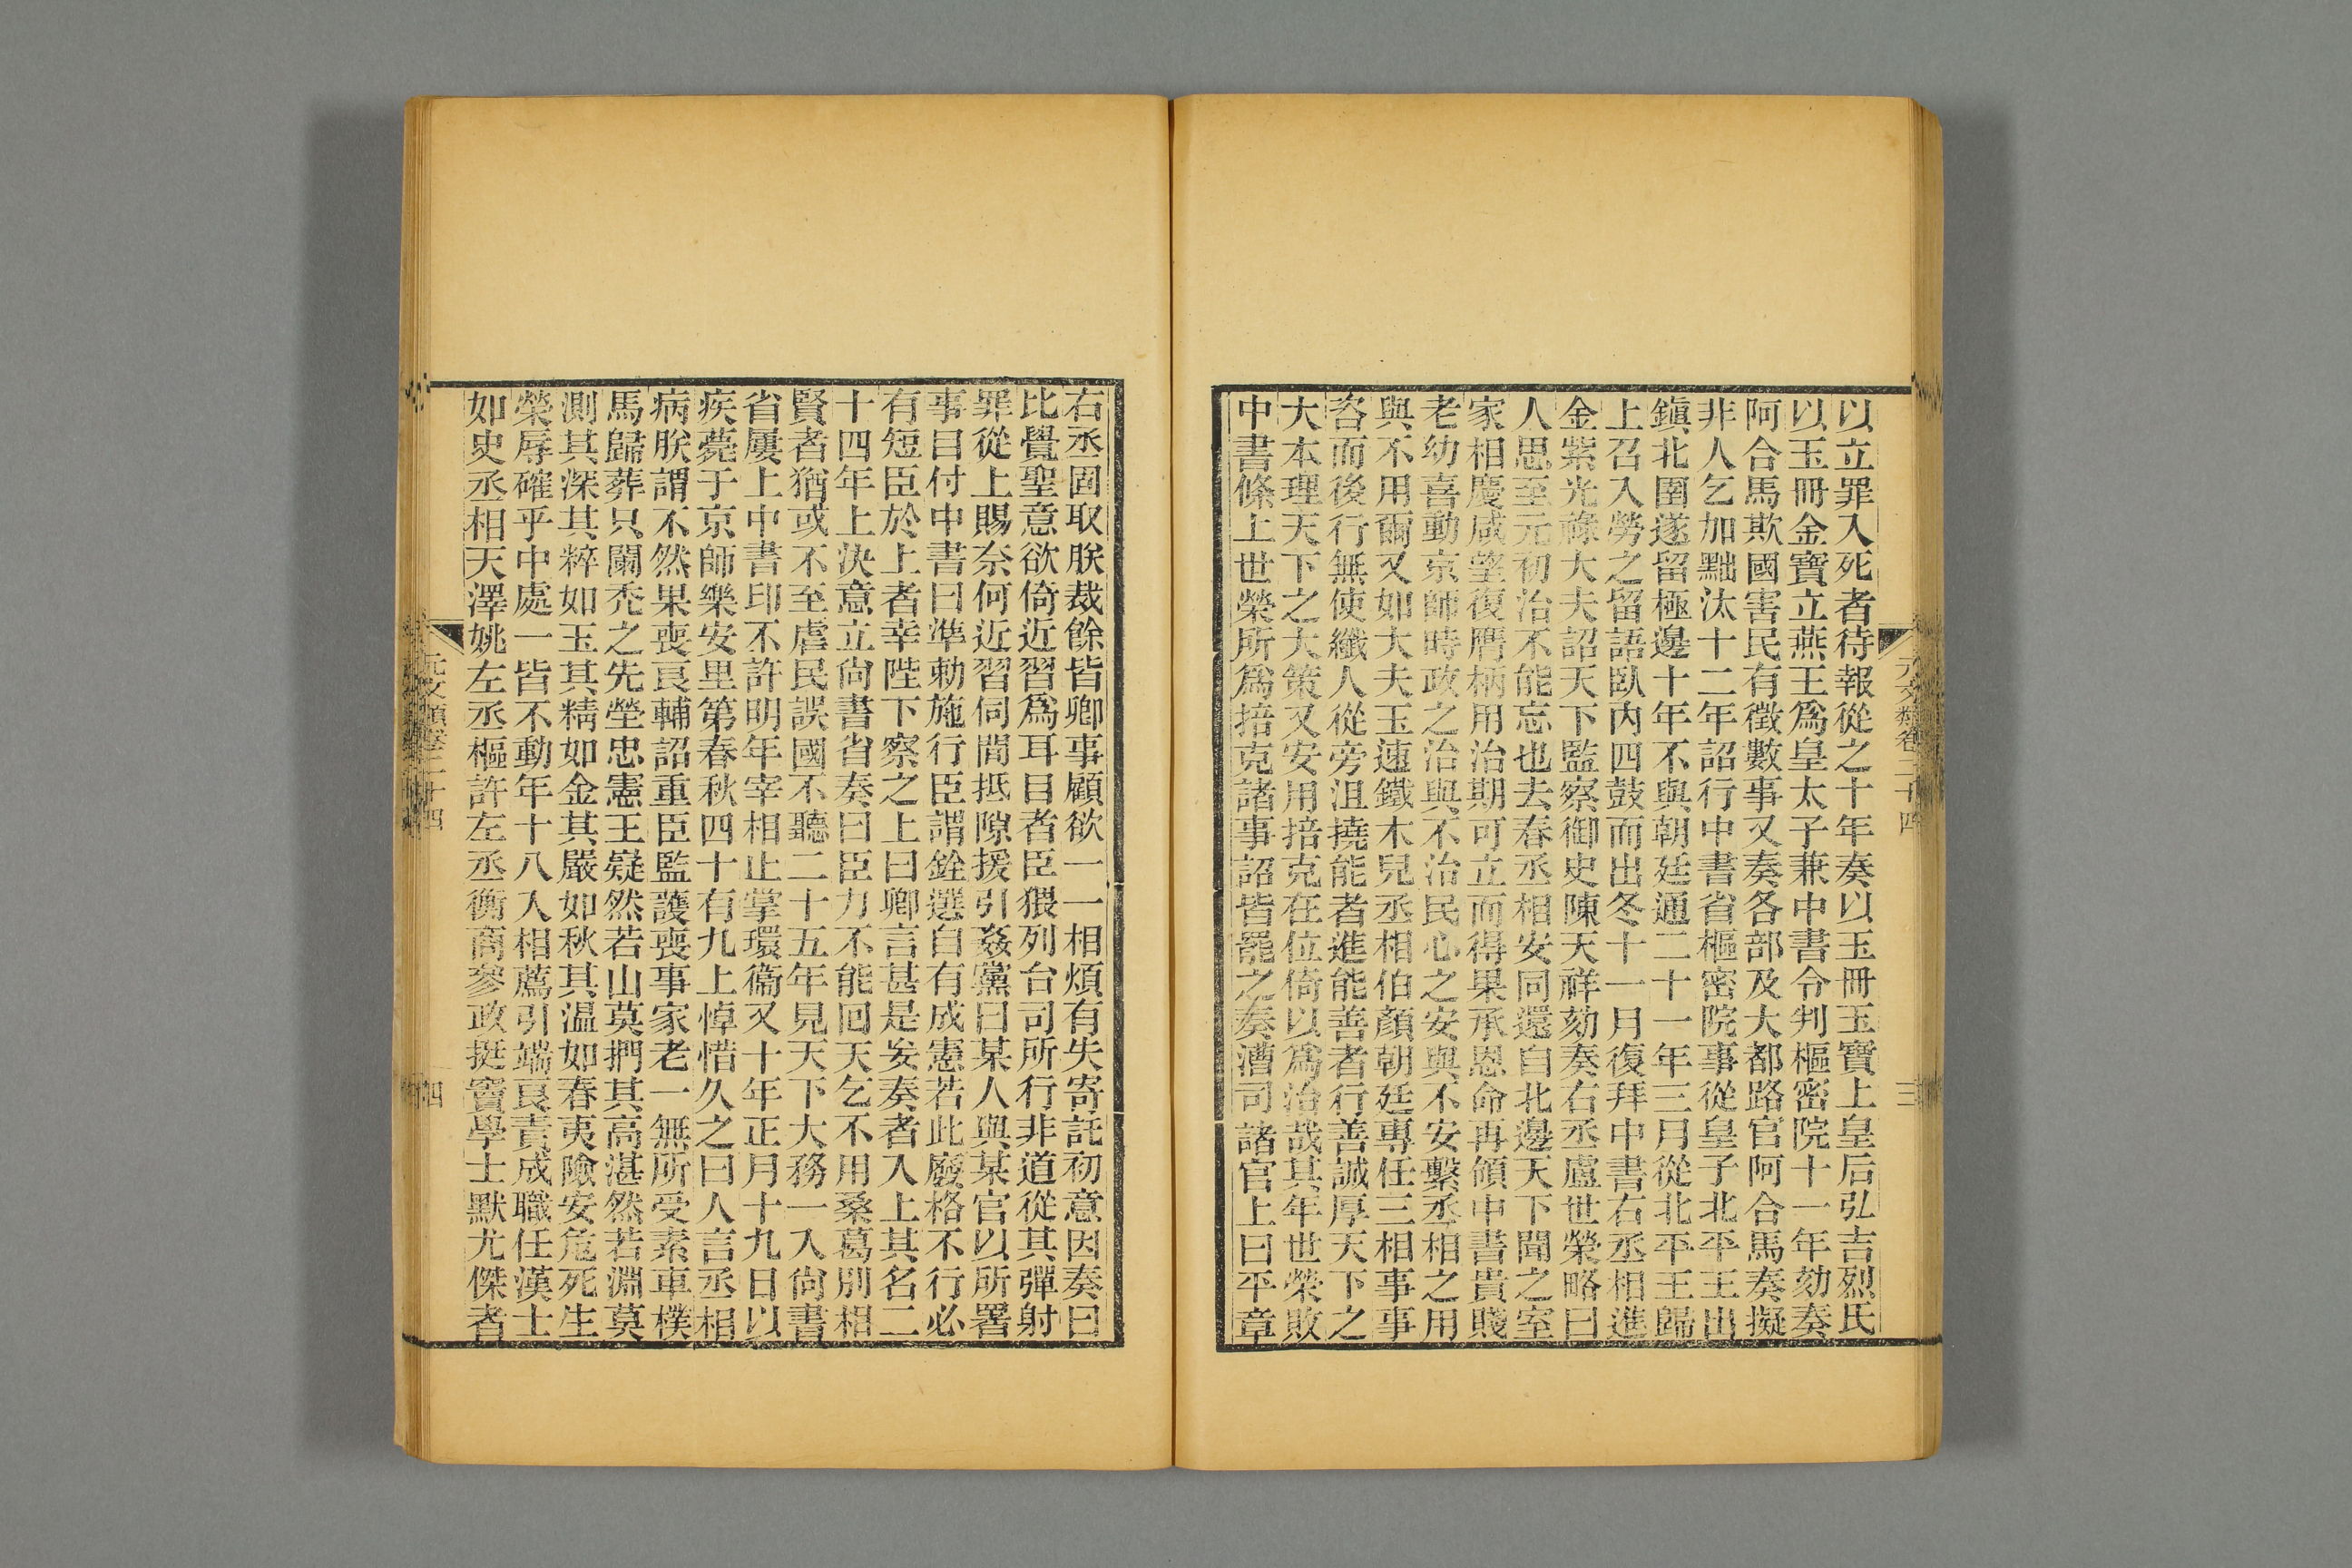 以立罪入死者待報從之十年奏以玉冊玉寶上皇后弘吉烈氏
以玉冊金寶立燕王爲皇太子兼中書令判樞密院十一年劾奏
阿合馬欺國害民有徵數事又奏各部及大都路官阿合馬奏擬
非人乞加黜汰十二年詔行中書省樞密院事從皇子北平王出
鎭北圉遂留極邊十年不與朝廷通二十一年三月從北平王歸
上召入勞之留語臥內四鼓而出冬十一月復拜中書右丞相進
金紫光祿大夫詔天下監察御史陳天祥劾奏右丞盧世榮略曰
人思至元初治不能忘也去春丞相安同還自北邊天下聞之室
家相慶咸望復膺柄用治期可立而得果承恩命再領中書貴賤
老幼喜動京師時政之治與不治民心之安與不安繫丞相之用
與不用爾又如大夫玉速鐵木兒丞相伯顏朝廷專任三相事事
咨而後行無使纖人從旁沮撓能者進能善者行善誠厚天下之
大本理天下之大策又安用掊克在位倚以爲治哉其年世榮敗
中書條上世榮所爲掊克諸事詔皆罷之奏漕司諸官上曰平章
元文類卷二十四
三
右丞固取朕裁餘皆卿事顧欲一一相煩有失寄託初意因奏曰
比覺聖意欲倚近習爲耳目者臣猥列台司所行非道從其彈射
罪從上賜奈何近習伺間抵隙援引姦黨曰某人與某官以所署
事目付中書曰準勅施行臣謂銓選自有成憲若此廢格不行必
有短臣於上者幸陛下察之上曰卿言甚是妄奏者入上其名二
十四年上決意立尙書省奏曰臣力不能回天乞不用桑葛別相
賢者猶或不至虐民誤國不聽二十五年見天下大務一入尙書
省屢上中書印不許明年宰相止掌環衞又十年正月十九日以
疾薨于京師樂安里第春秋四十有九上悼惜久之曰人言丞相
病朕謂不然果喪良輔詔重臣監護喪事家老一無所受素車樸
馬歸葬只闌禿之先塋忠憲王嶷然若山莫捫其高湛然若淵莫
測其深其粹如玉其精如金其嚴如秋其溫如春夷險安危死生
榮辱確乎中處一皆不動年十八入相薦引端良責成職任漢士
如史丞相天澤姚左丞樞許左丞衡商參政挺竇學士默尤傑者
元文類卷二十四
四